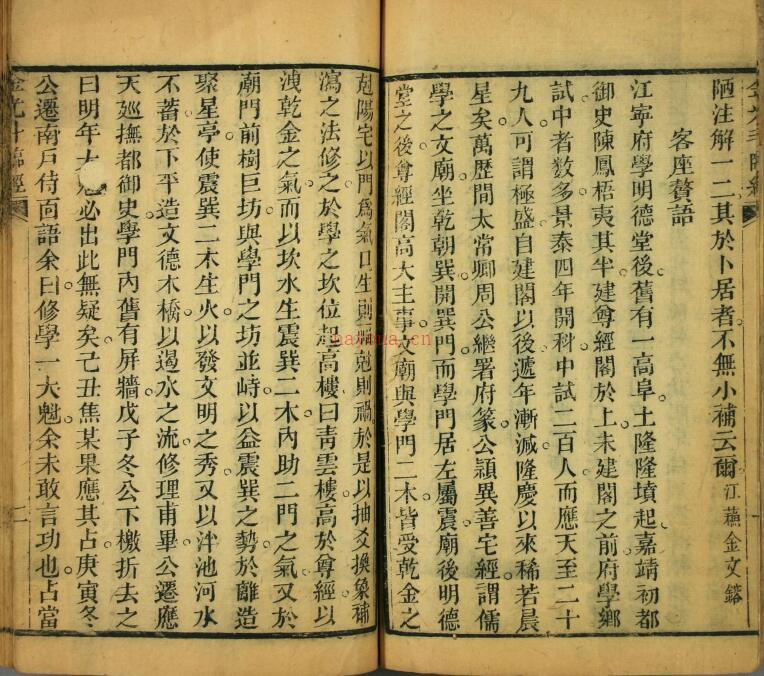 陋注解一二其於卜居者不無小補云爾江蘇金文鎔
客座贅語
江寧府學明德堂後舊有一高阜土隆隆墳起嘉靖初都
御史陳鳳梧夷其半建尊經閣於上未建閣之前府學鄉
試中者數多景泰四年開科中試二百人而應天至二十
九人可謂極盛自建閣以後遞年漸減隆慶以來稀若晨
星矣萬歷間太常卿周公繼署府篆公頴異善宅經謂儒
學之文廟坐乾朝巽開巽門而學門居左屬震廟後明德
堂之後尊經閣高大主事文廟與學門二木皆受乾金之
尅陽宅以門爲氣口生則福尅則禍於是以抽爻換象補
瀉之法修之於學之坎位起高樓曰靑雲樓高於尊經以
洩乾金之氣而以坎水生震巽二木內助二門之氣又於
廟門前樹巨坊與學門之坊並峙以益震巽之勢於離造
聚星亭使震巽二木生火以發文明之秀又以泮池河水
不蓄於下平造文德木橋以遏水之流修理甫畢公遷應
天廵撫都御史學門內舊有屏牆戊子冬公下檄折去之
曰明年大魁必出此無疑矣己丑焦某果應其占庚寅冬
公遷南戸侍面語余曰修學一大魁余未敢言功也占當
二
haihua.cn